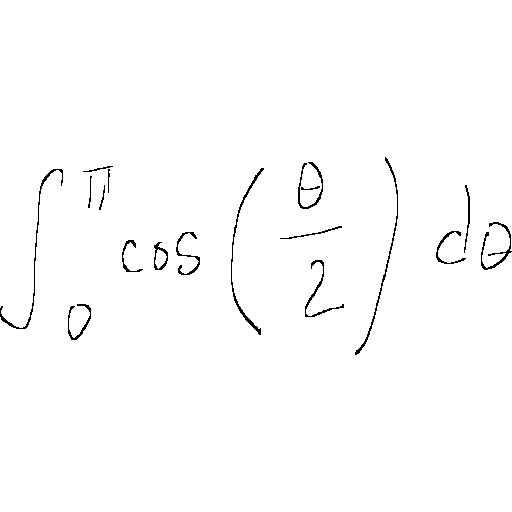 \int_0^{\pi} \cos\left(\frac{\theta}{2}\right) d\theta